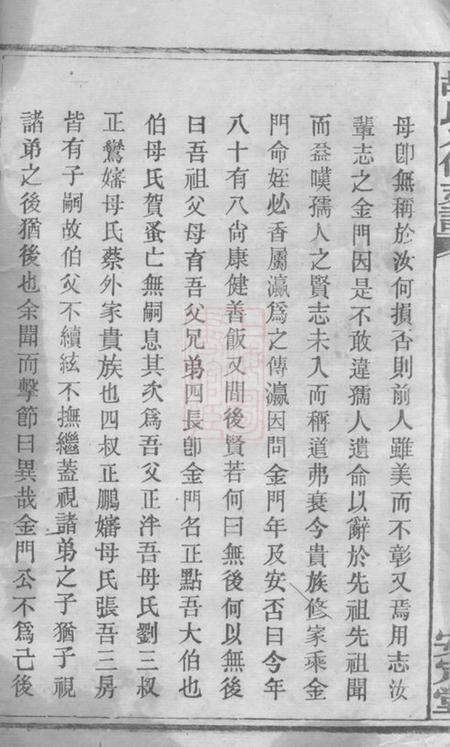 母卽無稱於汝何損否則前人雖美而不彰又焉用志汝
輩志之金門因是不敢違孺人遺命以辭於先祖先祖聞
而益嘆孺人之賢志未入而稱道弗衰今貴族修家乘金
門命姪必香屬瀛爲之傳瀛因問金門年及安否曰今年
八十有八尙康健善飯又問後賢若何曰無後何以無後
曰吾祖父母育吾父兄弟四長卽金門名正點吾大伯也
伯母氏賀蚤亡無嗣息其次爲吾父正泮吾母氏劉三叔
正鸞嬸母氏蔡外家貴族也四叔正鵬嬸母氏張吾三房
皆有子嗣故伯父不續絃不撫繼蓋視諸弟之子猶子視
諸弟之後猶後也余聞而擊節曰異哉金門公不爲己後
安定堂